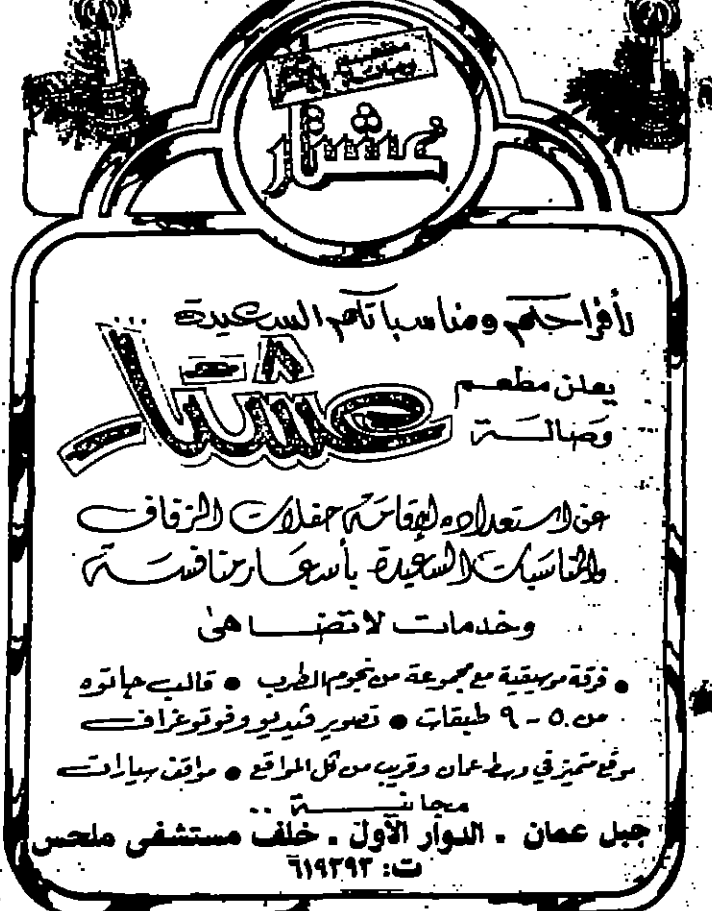 عشتار
لأفراحكم ومناسباتكم السعيدة ...
يعلن مطعم
وصالة
عشتار
عن استعداده لإقامة حفلات الزفاف
والمناسبات السعيدة بأسعار منافسة
وخدمات لا تضاهى
• فرقة موسيقية مع مجموعة من نجوم الطرب • قالب جاتوه
من ٥ - ٩ طبقات • تصوير فيديو وفوتوغراف
موقع متميز في وسط عمان وقريب من كل المواقع • مواقف سيارات
مجانية ..
جبل عمان . الدوار الأول . خلف مستشفى ملحس
ت: ٦١٩٣٩٣